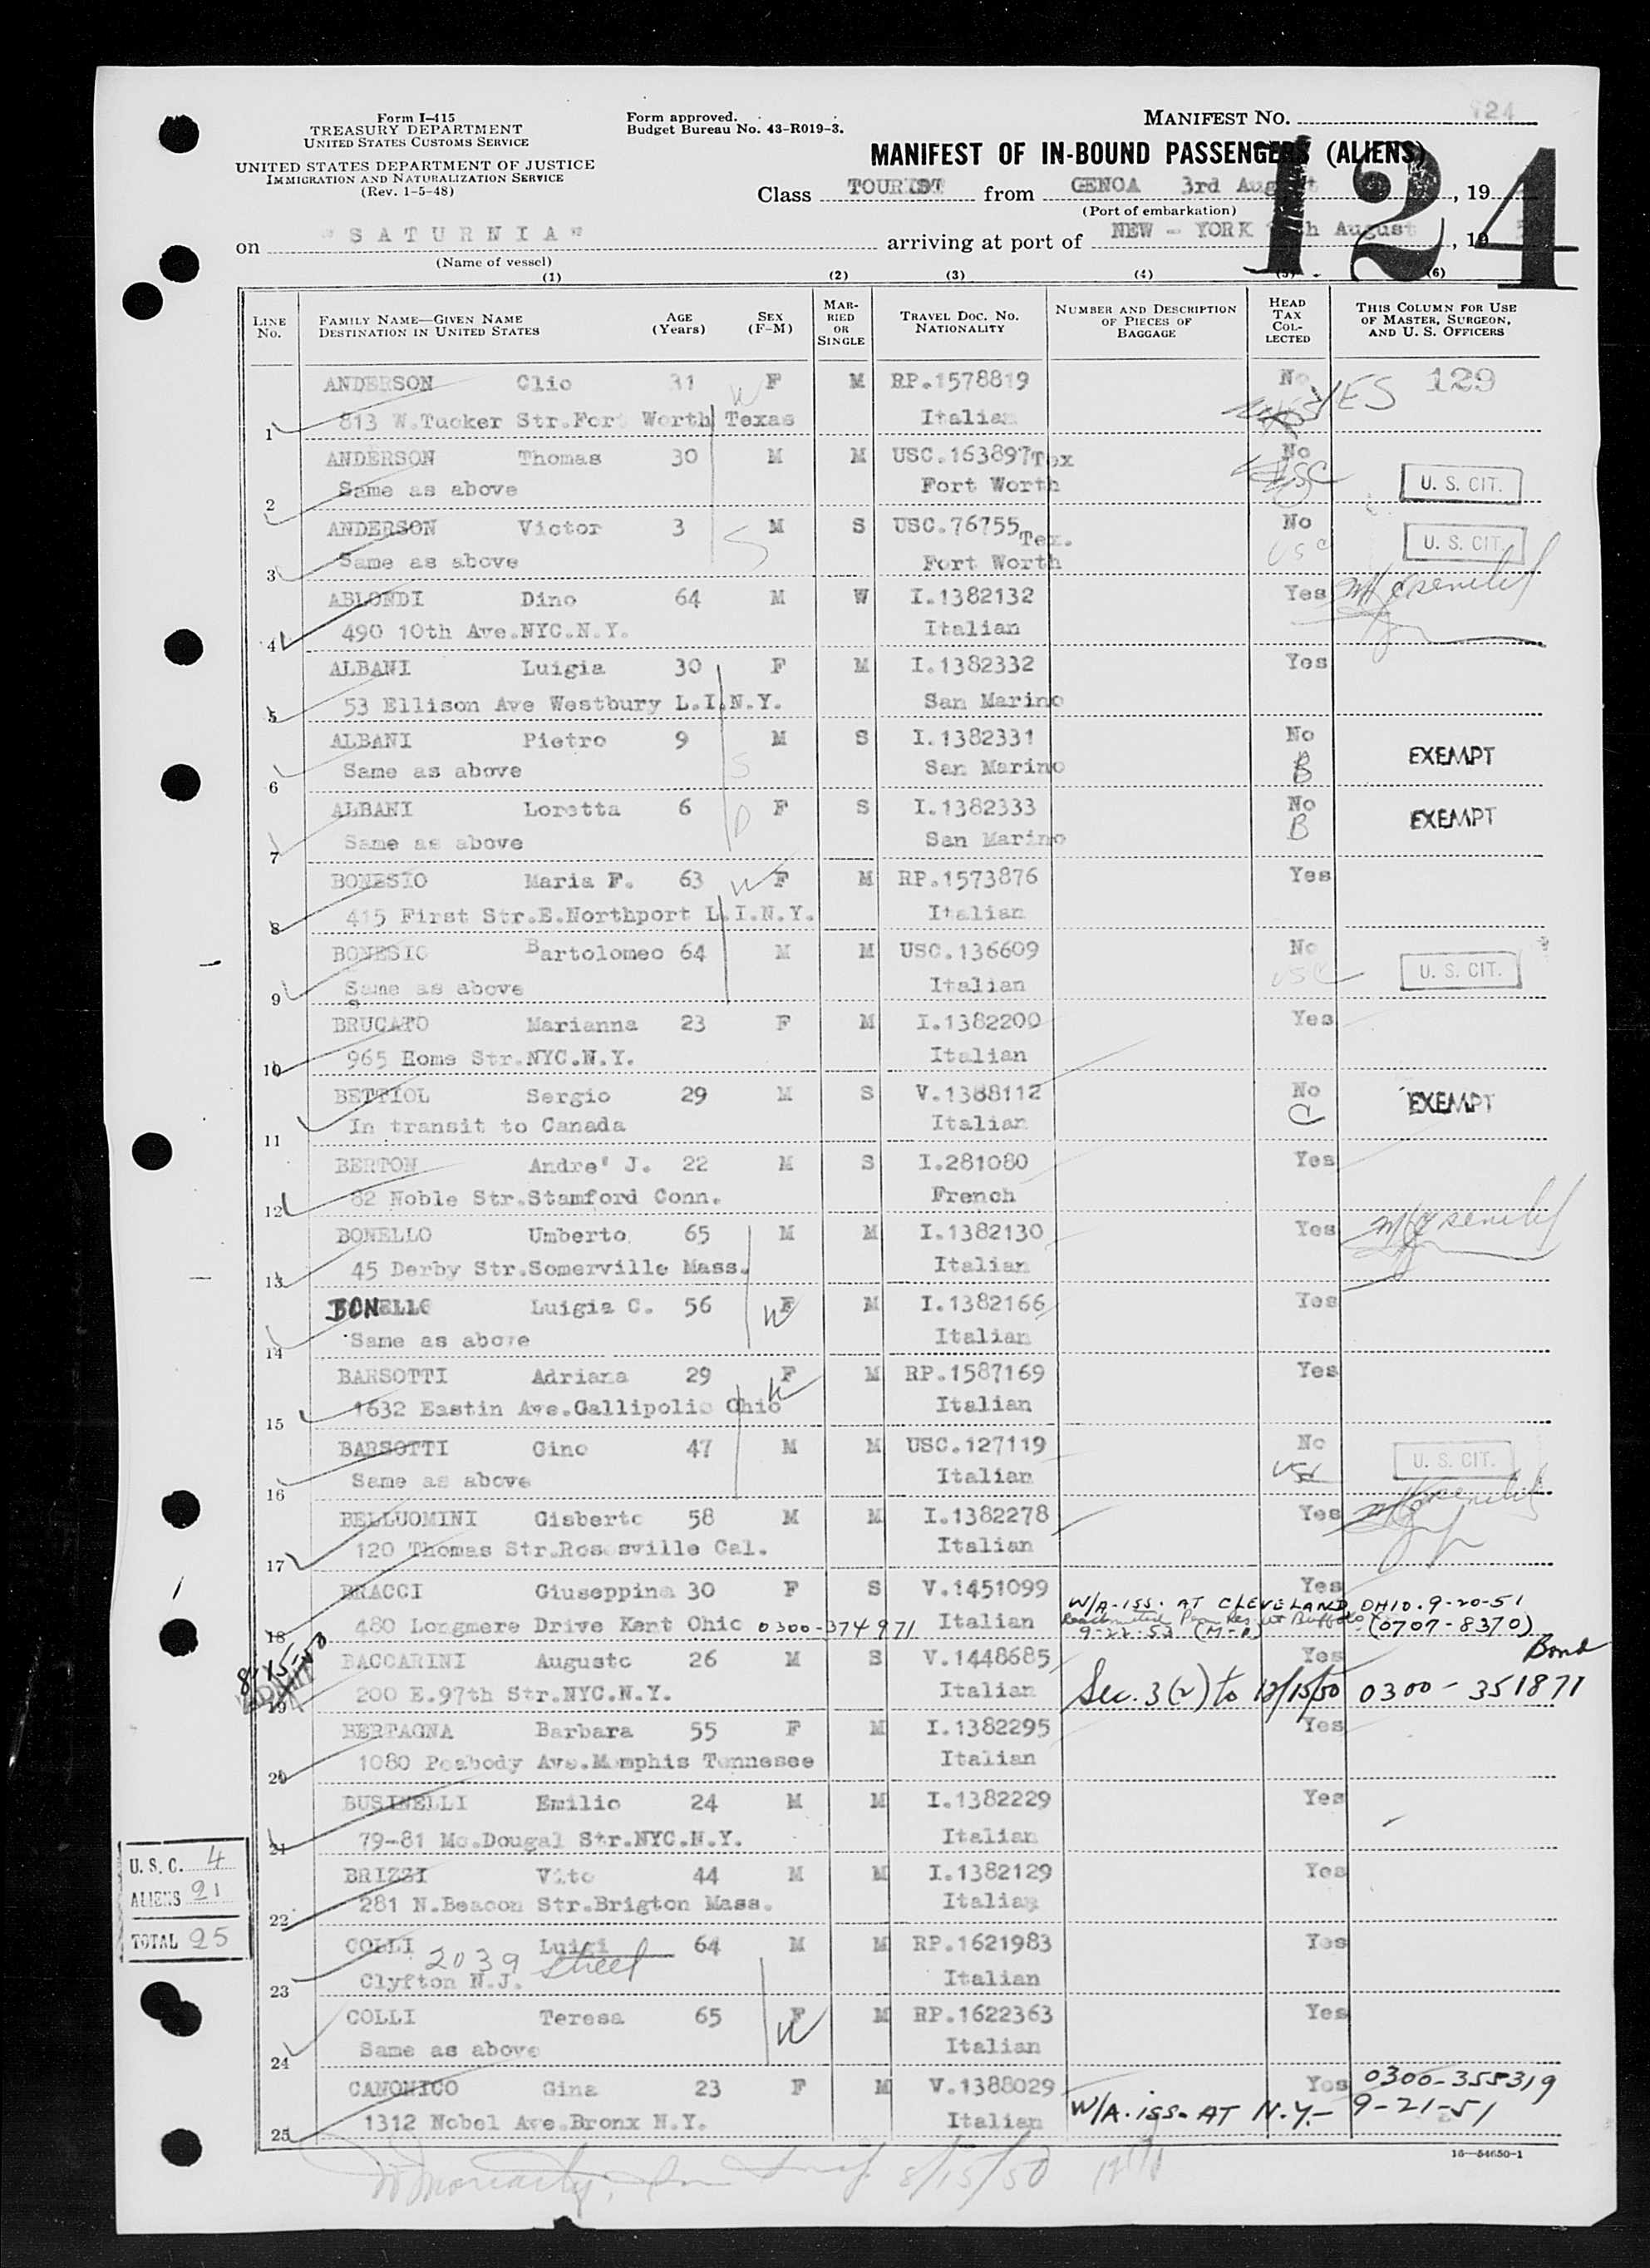 Form I-415
TREASURY DEPARTMENT
UNITED STATES CUSTOMS SERVICE
UNITED STATES DEPARTMENT OF JUSTICE
IMMIGRATION AND NATURALIZATION SERVICE
(Rev. 1-5-48)
Form approved.
Budget Bureau No. 43-R019-3.
MANIFEST NO. 124
MANIFEST OF IN-BOUND PASSENGERS (ALIENS)
124
Class TOURIST from GENOA 3rd August, 19
(Port of embarkation)
on "SATURNIA" arriving at port of NEW - YORK August, 19
(Name of vessel)
(1) (2) (3) (4) (5) (6)
LINE No. FAMILY NAME—GIVEN NAME DESTINATION IN UNITED STATES AGE (Years) SEX (F-M) MARRIED OR SINGLE TRAVEL DOC. NO. NATIONALITY NUMBER AND DESCRIPTION OF PIECES OF BAGGAGE HEAD TAX COLLECTED THIS COLUMN FOR USE OF MASTER, SURGEON, AND U. S. OFFICERS
ANDERSON Clio 31 W F M RP.1578819 No YES 129
1 813 W.Tucker Str.Fort Worth Texas Italian
ANDERSON Thomas 30 M M USC.163897 Tex No USC
2 Same as above Fort Worth U. S. CIT.
ANDERSON Victor 3 M S USC.76755 Tex. No USC U. S. CIT.
3 Same as above Fort Worth
ABLONDI Dino 64 M W I.1382132 Yes
4 490 10th Ave.NYC.N.Y. Italian
ALBANI Luigia 30 F M I.1382332 Yes
5 53 Ellison Ave Westbury L.I.N.Y. San Marino
ALBANI Pietro 9 M S I.1382331 No B EXEMPT
6 Same as above San Marino
ALBANI Loretta 6 F S I.1382333 No B EXEMPT
7 Same as above San Marino
BONESIO Maria F. 63 W F M RP.1573876 Yes
8 415 First Str.E.Northport L.I.N.Y. Italian
BONESIO Bartolomeo 64 M M USC.136609 No USC U. S. CIT.
9 Same as above Italian
BRUCATO Marianna 23 F M I.1382200 Yes
10 965 Home Str.NYC.N.Y. Italian
BETTIOL Sergio 29 M S V.1388112 No C EXEMPT
11 In transit to Canada Italian
BERTON Andre' J. 22 M S I.281080 Yes
12 82 Noble Str.Stamford Conn. French
BONELLO Umberto 65 M M I.1382130 Yes
13 45 Derby Str.Somerville Mass. Italian
BONELLO Luigia C. 56 F W M I.1382166 Yes
14 Same as above Italian
BARSOTTI Adriana 29 F W M RP.1587169 Yes
15 1632 Eastin Ave.Gallipolis Ohio Italian
BARSOTTI Gino 47 M M USC.127119 No USC U. S. CIT.
16 Same as above Italian
BELLUOMINI Gisberto 58 M M I.1382278 Yes
17 120 Thomas Str.Rosesville Cal. Italian
BRACCI Giuseppina 30 F S V.1451099 Yes W/A-iss. AT CLEVELAND OHIO. 9-20-51
18 480 Longmere Drive Kent Ohio 0300-374971 Italian 9-22-53 (0707-8370)
8-15-50
BACCARINI Augusto 26 M S V.1448685 Yes Bond
19 200 E.97th Str.NYC.N.Y. Italian Sec. 3(2) to 12/15/50 0300-351871
BERTAGNA Barbara 55 F M I.1382295 Yes
20 1080 Peabody Ave.Memphis Tennesee Italian
BUSINELLI Emilio 24 M M I.1382229 Yes
21 79-81 Mc.Dougal Str.NYC.N.Y. Italian
BRIZZI Vito 44 M M I.1382129 Yes
22 281 N.Beacon Str.Brigton Mass. Italian
COLLI Luigi 64 M M RP.1621983 Yes
2039 Street
23 Clyfton N.J. Italian
COLLI Teresa 65 F W M RP.1622363 Yes
24 Same as above Italian
CANONICO Gina 23 F M V.1388029 Yes 0300-355319
25 1312 Nobel Ave.Bronx N.Y. Italian W/A-iss. AT N.Y.- 9-21-51
U. S. C. 4
ALIENS 21
TOTAL 25
16—54650-1
8/15/50